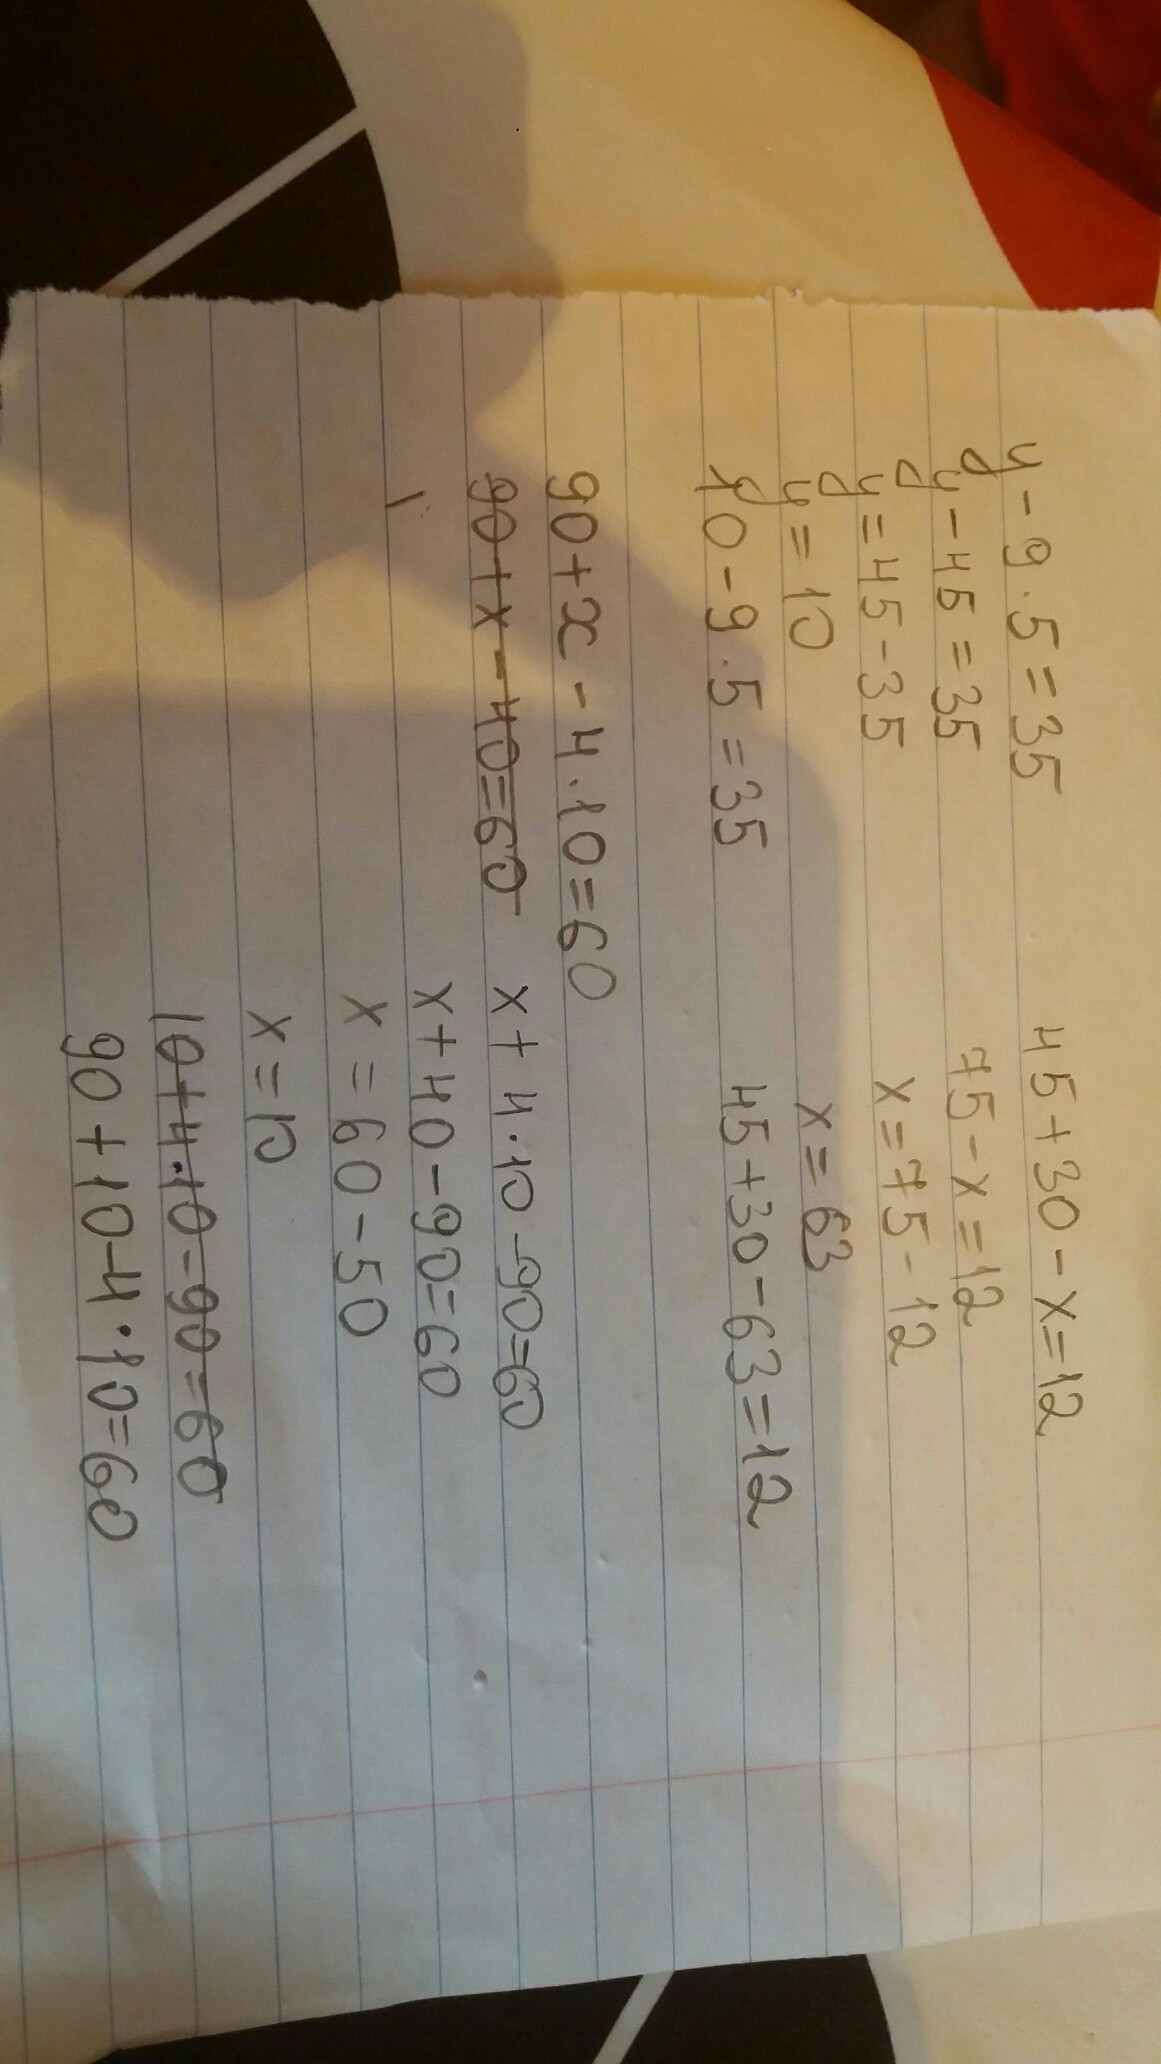 y - 9 . 5 = 35
y - 45 = 35
y = 45 - 35
y = 10
10 - 9 . 5 = 35
45 + 30 - x = 12
75 - x = 12
x = 75 - 12
x = 63
45 + 30 - 63 = 12
90 + x - 4 . 10 = 60
90 + x - 40 = 60
x + 4 . 10 - 90 = 60
x + 40 - 90 = 60
x = 60 - 50
x = 10
10 + 4 . 10 - 90 = 60
90 + 10 - 4 . 10 = 60